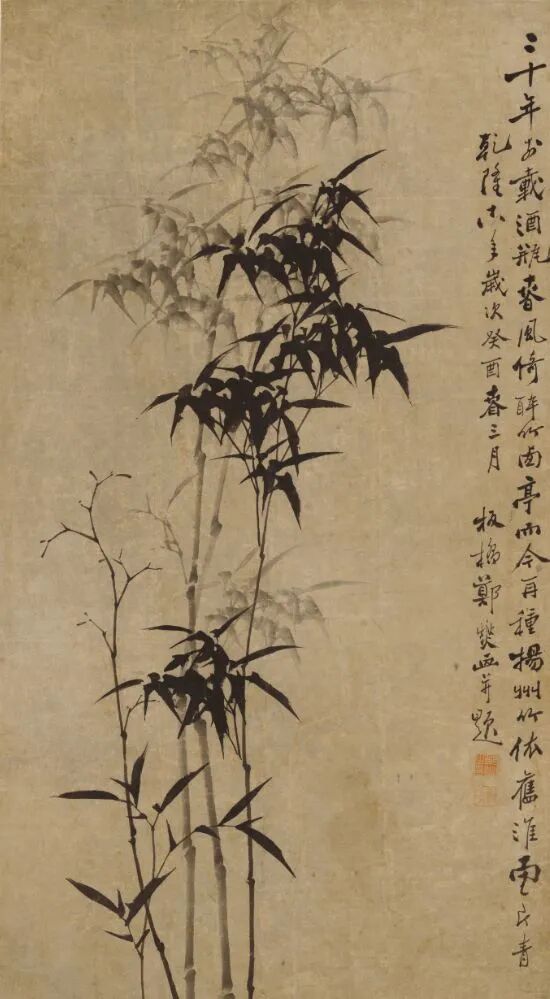 三十年前載酒瓶春風倚醉竹西亭而今再種揚州竹依舊淮南一片青
乾隆十八年歲次癸酉春三月 板橋鄭燮畫并題